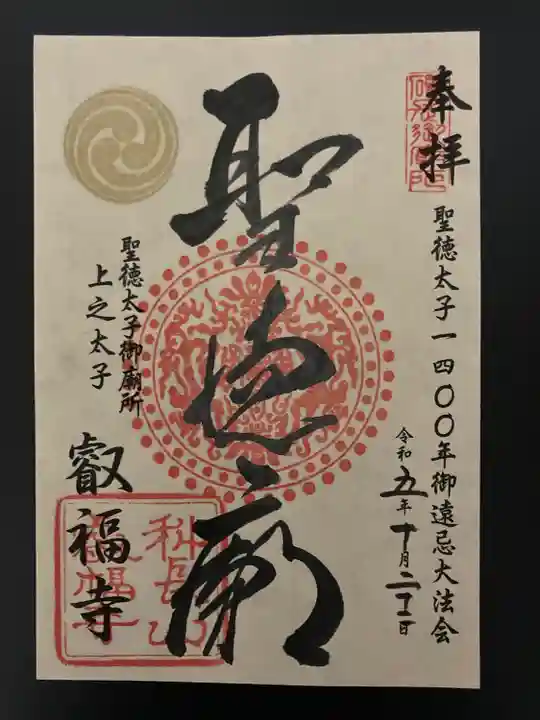 奉拝
聖徳太子一四〇〇年御遠忌大法会
令和五年十月二十二日
聖徳之廟
聖徳太子御廟所
上之太子
叡福寺
科長山
叡福寺